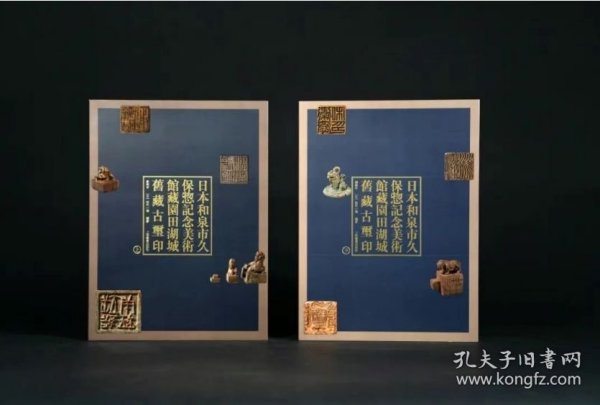 日本和泉市久
保惣記念美術
館藏園田湖城
舊藏古璽印
上
日本和泉市久
保惣記念美術
館藏園田湖城
舊藏古璽印
孔夫子旧书网
www.kongfz.com